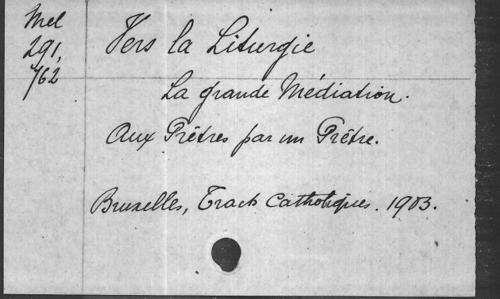 Mel
291,
762
Vers la Liturgie
La grande Médiation.
Aux Prêtres par un Prêtre.
Bruxelles, Tracts Catholiques. 1903.